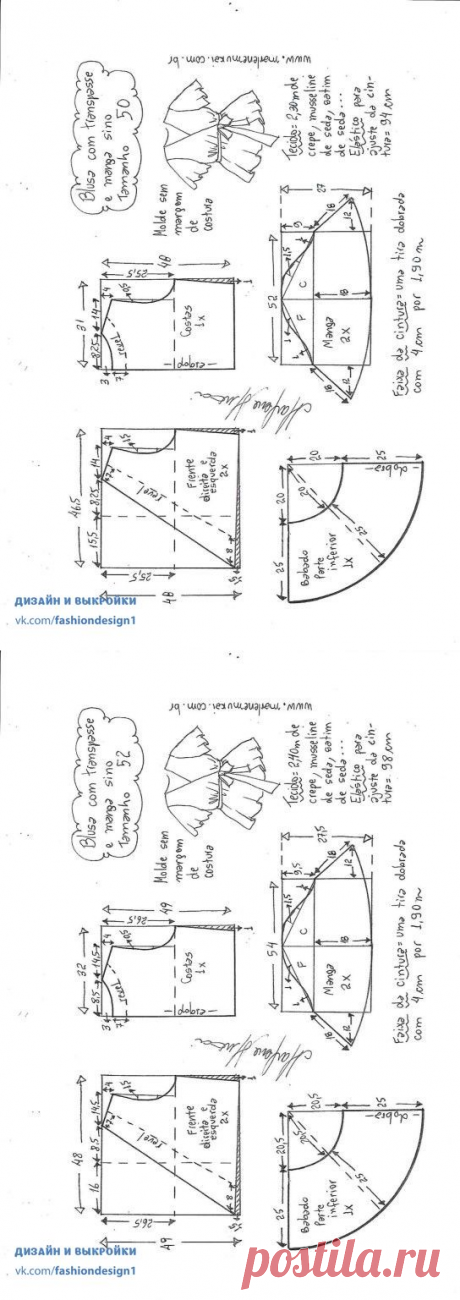 Blusa com transpasse
e manga sino
Tamanho 50
www.marlenemukai.com.br
Molde sem
margem
de
costura
Tecido = 2,30m de
crepe, musseline
de seda, cetim
de seda...
Elástico para
ajuste da cin-
tura = 94 cm
31
8,25
14
4
3
7
revel
25,5
48
Costas
1x
dobra
1
52
27
9
1,5
18
12
C
F
18
Manga
2x
18
12
Faixa da cintura = uma tira dobrada
com 4 cm por 1,90 m
46,5
15,5
8,25
14
4
7
revel
25,5
48
Frente
direita e
esquerda
2x
8
1
20
25
20
20
25
25
Babado
Parte
inferior
1x
dobra
ДИЗАЙН И ВЫКРОЙКИ
vk.com/fashiondesign1
Blusa com transpasse
e manga sino
Tamanho 52
www.marlenemukai.com.br
Molde sem
margem
de
costura
Tecido = 2,40m de
crepe, musseline
de seda, cetim
de seda...
Elástico para
ajuste da cin-
tura = 98 cm
32
8,5
14,5
4
3
7
revel
26,5
49
Costas
1x
dobra
1
54
27,5
9,5
1,5
18
12
C
F
18
Manga
2x
18
12
Faixa da cintura = uma tira dobrada
com 4 cm por 1,90 m
48
16
8,5
14,5
4
7
revel
26,5
49
Frente
direita e
esquerda
2x
8
1
20,5
25
20,5
20,5
25
25
Babado
Parte
inferior
1x
dobra
ДИЗАЙН И ВЫКРОЙКИ
vk.com/fashiondesign1
postila.ru